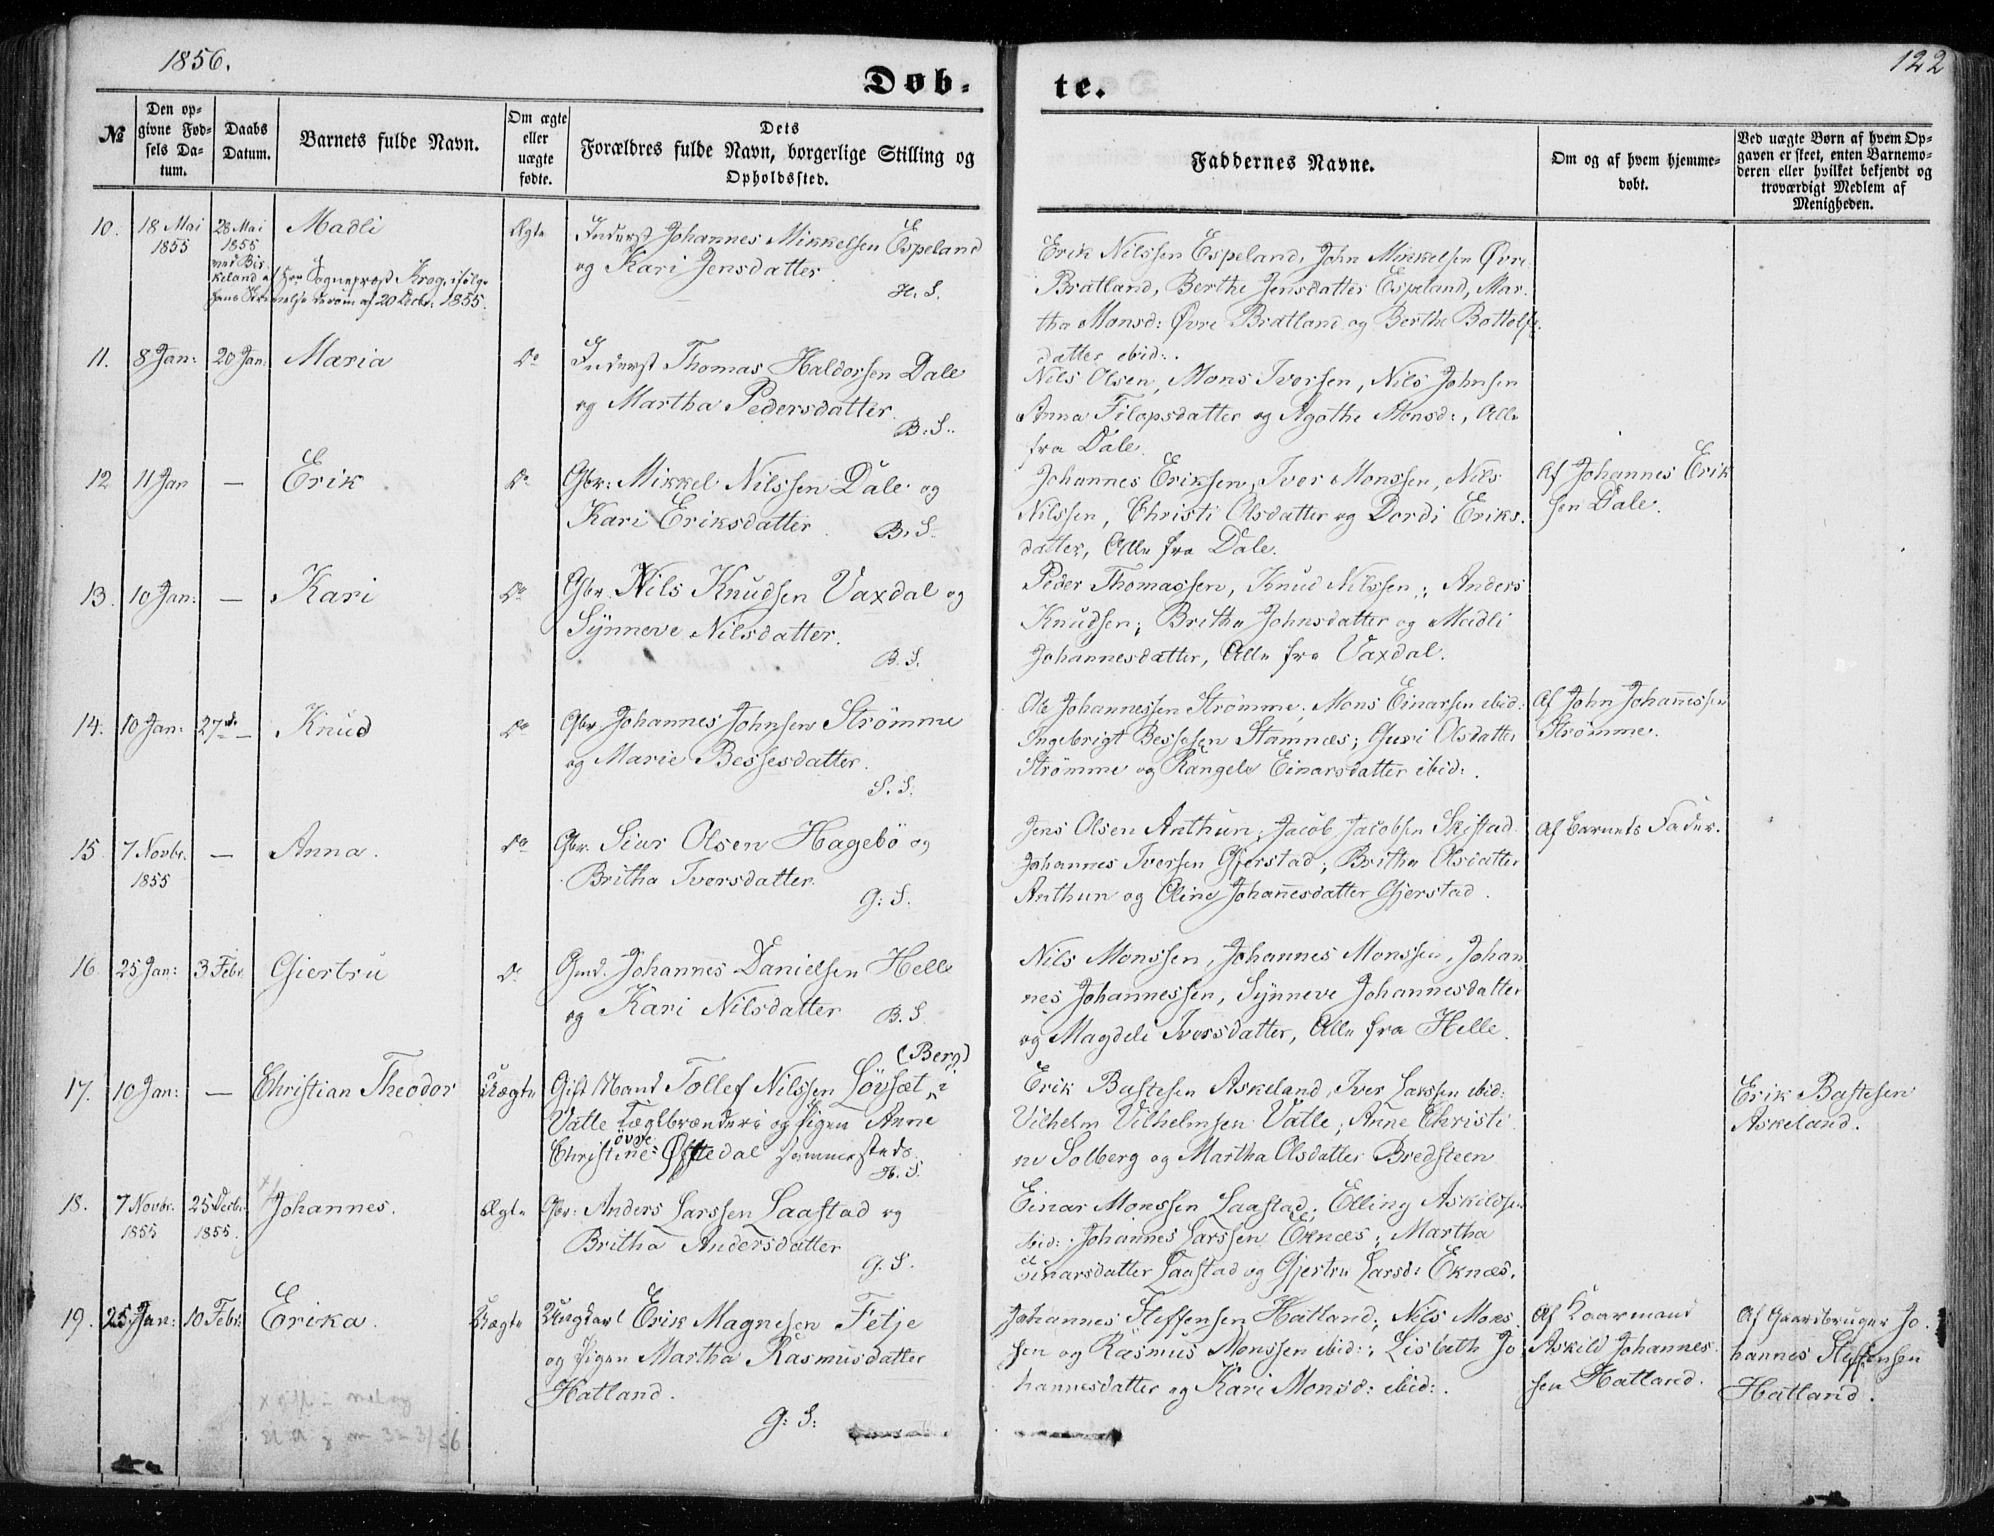 1856.
122
Døb-
te.
№
Den op-
givne Fød-
sels Da-
tum.
Daabs
Datum.
Barnets fulde Navn.
Om ægte
eller
uægte
fødte.
Dets
Forældres fulde Navn, borgerlige Stilling og
Opholdssted.
Faddernes Navne.
Om og af hvem hjemme-
døbt.
Ved uægte Børn af hvem Op-
gaven er skeet, enten Barnemo-
deren eller hvilket bekjendt og
troværdigt Medlem af
Menigheden.
10.
18 Mai
1855
28 Mai
1855
ved Bir-
keland af Hr. Sognepræst Krog, ifølge
hans Skrivelse derom af 20 Decbr. 1855.
Madli
Ægte
Inderst Johannes Mikkelsen Espeland
og Kari Jensdatter
H. S.
Erik Nilssen Espeland, John Mikkelsen Øvre
Bratland, Berthe Jensdatter Espeland, Mar-
tha Monsd: Øvre Bratland og Berthe Bottolfs-
datter ibid:.
11.
8 Jan:
20 Jan:
Maria
Do
Inderst Thomas Haldorsen Dale
og Martha Pedersdatter.
B: S:
Nils Olsen, Mons Iversen, Nils Johnsen
Anna Filopsdatter og Agothe Monsd:, Alle
fra Dale.
12
11 Jan
—
Erik
Do
Gbr: Mikkel Nilssen Dale og
Kari Eriksdatter.
B. S.
Johannes Eriksen, Iver Monssen, Nils
Nilssen, Christi Olsdatter og Dordi Eriks-
datter, Alle fra Dale.
Af Johannes Erik
sen Dale.
13.
10 Jan:
—
Kari
Do
Gbr. Nils Knudsen Vaxdal og
Synneve Nilsdatter.
B. S.
Peder Thomassen, Knud Nilssen; Anders
Knudsen; Britha Johnsdatter og Madli
Johannesdatter, Alle fra Vaxdal.
14.
10 Jan:
27de —
Knud
Do
Gbr Johannes Johnsen Strømme
og Marie Bessesdatter.
S. S.
Ole Johannessen Strømme, Mons Einarsen ibid:
Ingebrigt Bessesen Stamnæs; Guri Olsdatter
Strømme og Rangele Einarsdatter ibid:.
Af John Johannessen
Strømme.
15
7 Novbr.
1855
—
Anna.
Do
Gbr. Siur Olsen Hagebö og
Britha Iversdatter.
G: S.
Jens Olsen Anthun, Jacob Jacobsen Skistad
Johannes Iversen Gjerstad; Britha Olsdatter
Anthun og Oline Johannesdatter Gjerstad.
Af Barnets Fader.
16.
25 Jan:
3 Febr.
Giertru
Do
Gmd. Johannes Danielsen Helle
og Kari Nilsdatter
B. S.
Nils Monssen, Johannes Monssen, Johan
nes Johannessen, Synneve Johannesdatter
og Magdeli Iversdatter, Alle fra Helle.
17.
10 Jan:
—
Christian Theodor
Uægte
(Berg)
Gift Mand Tollef Nilssen Lövsæt i
Valle Teglbrænderi og Pigen Anne
Christine øvre Øftedal sammesteds.
H. S.
Erik Bastesen Askeland, Iver Larssen ibid:
Vilhelm Vilhelmsen Valle; Anne Christi
ne Solberg og Martha Olsdatter Bredsteen
Erik Bastesen
Askeland.
18.
7 Novbr.
1855
25 Decbr.
1855.
Johannes.
Ægte
Gbr: Anders Larssen Laastad og
Britha Andersdatter
G. S.
Einar Monssen Laastad; Elling Askildsen
ibid: Johannes Larssen Eknæs; Martha
Einarsdatter Laastad og Gjertru Larsd: Eknæs.
19.
25 Jan:
10 Febr:
Erika.
Uægte
Ungkarl Erik Magnesen Fetje
og Pigen Martha Rasmusdatter
Hatland.
G: S:
Johannes Steffensen Hatland; Nils Mons
sen og Rasmus Monssen ibid:; Lisbeth Jo
hannesdatter og Kari Monsd: ibid:.
Af Kaarmand
Askild Johannes
sen Hatland.
Af Gaardbruger Jo-
hannes Steffensen
Hatland.